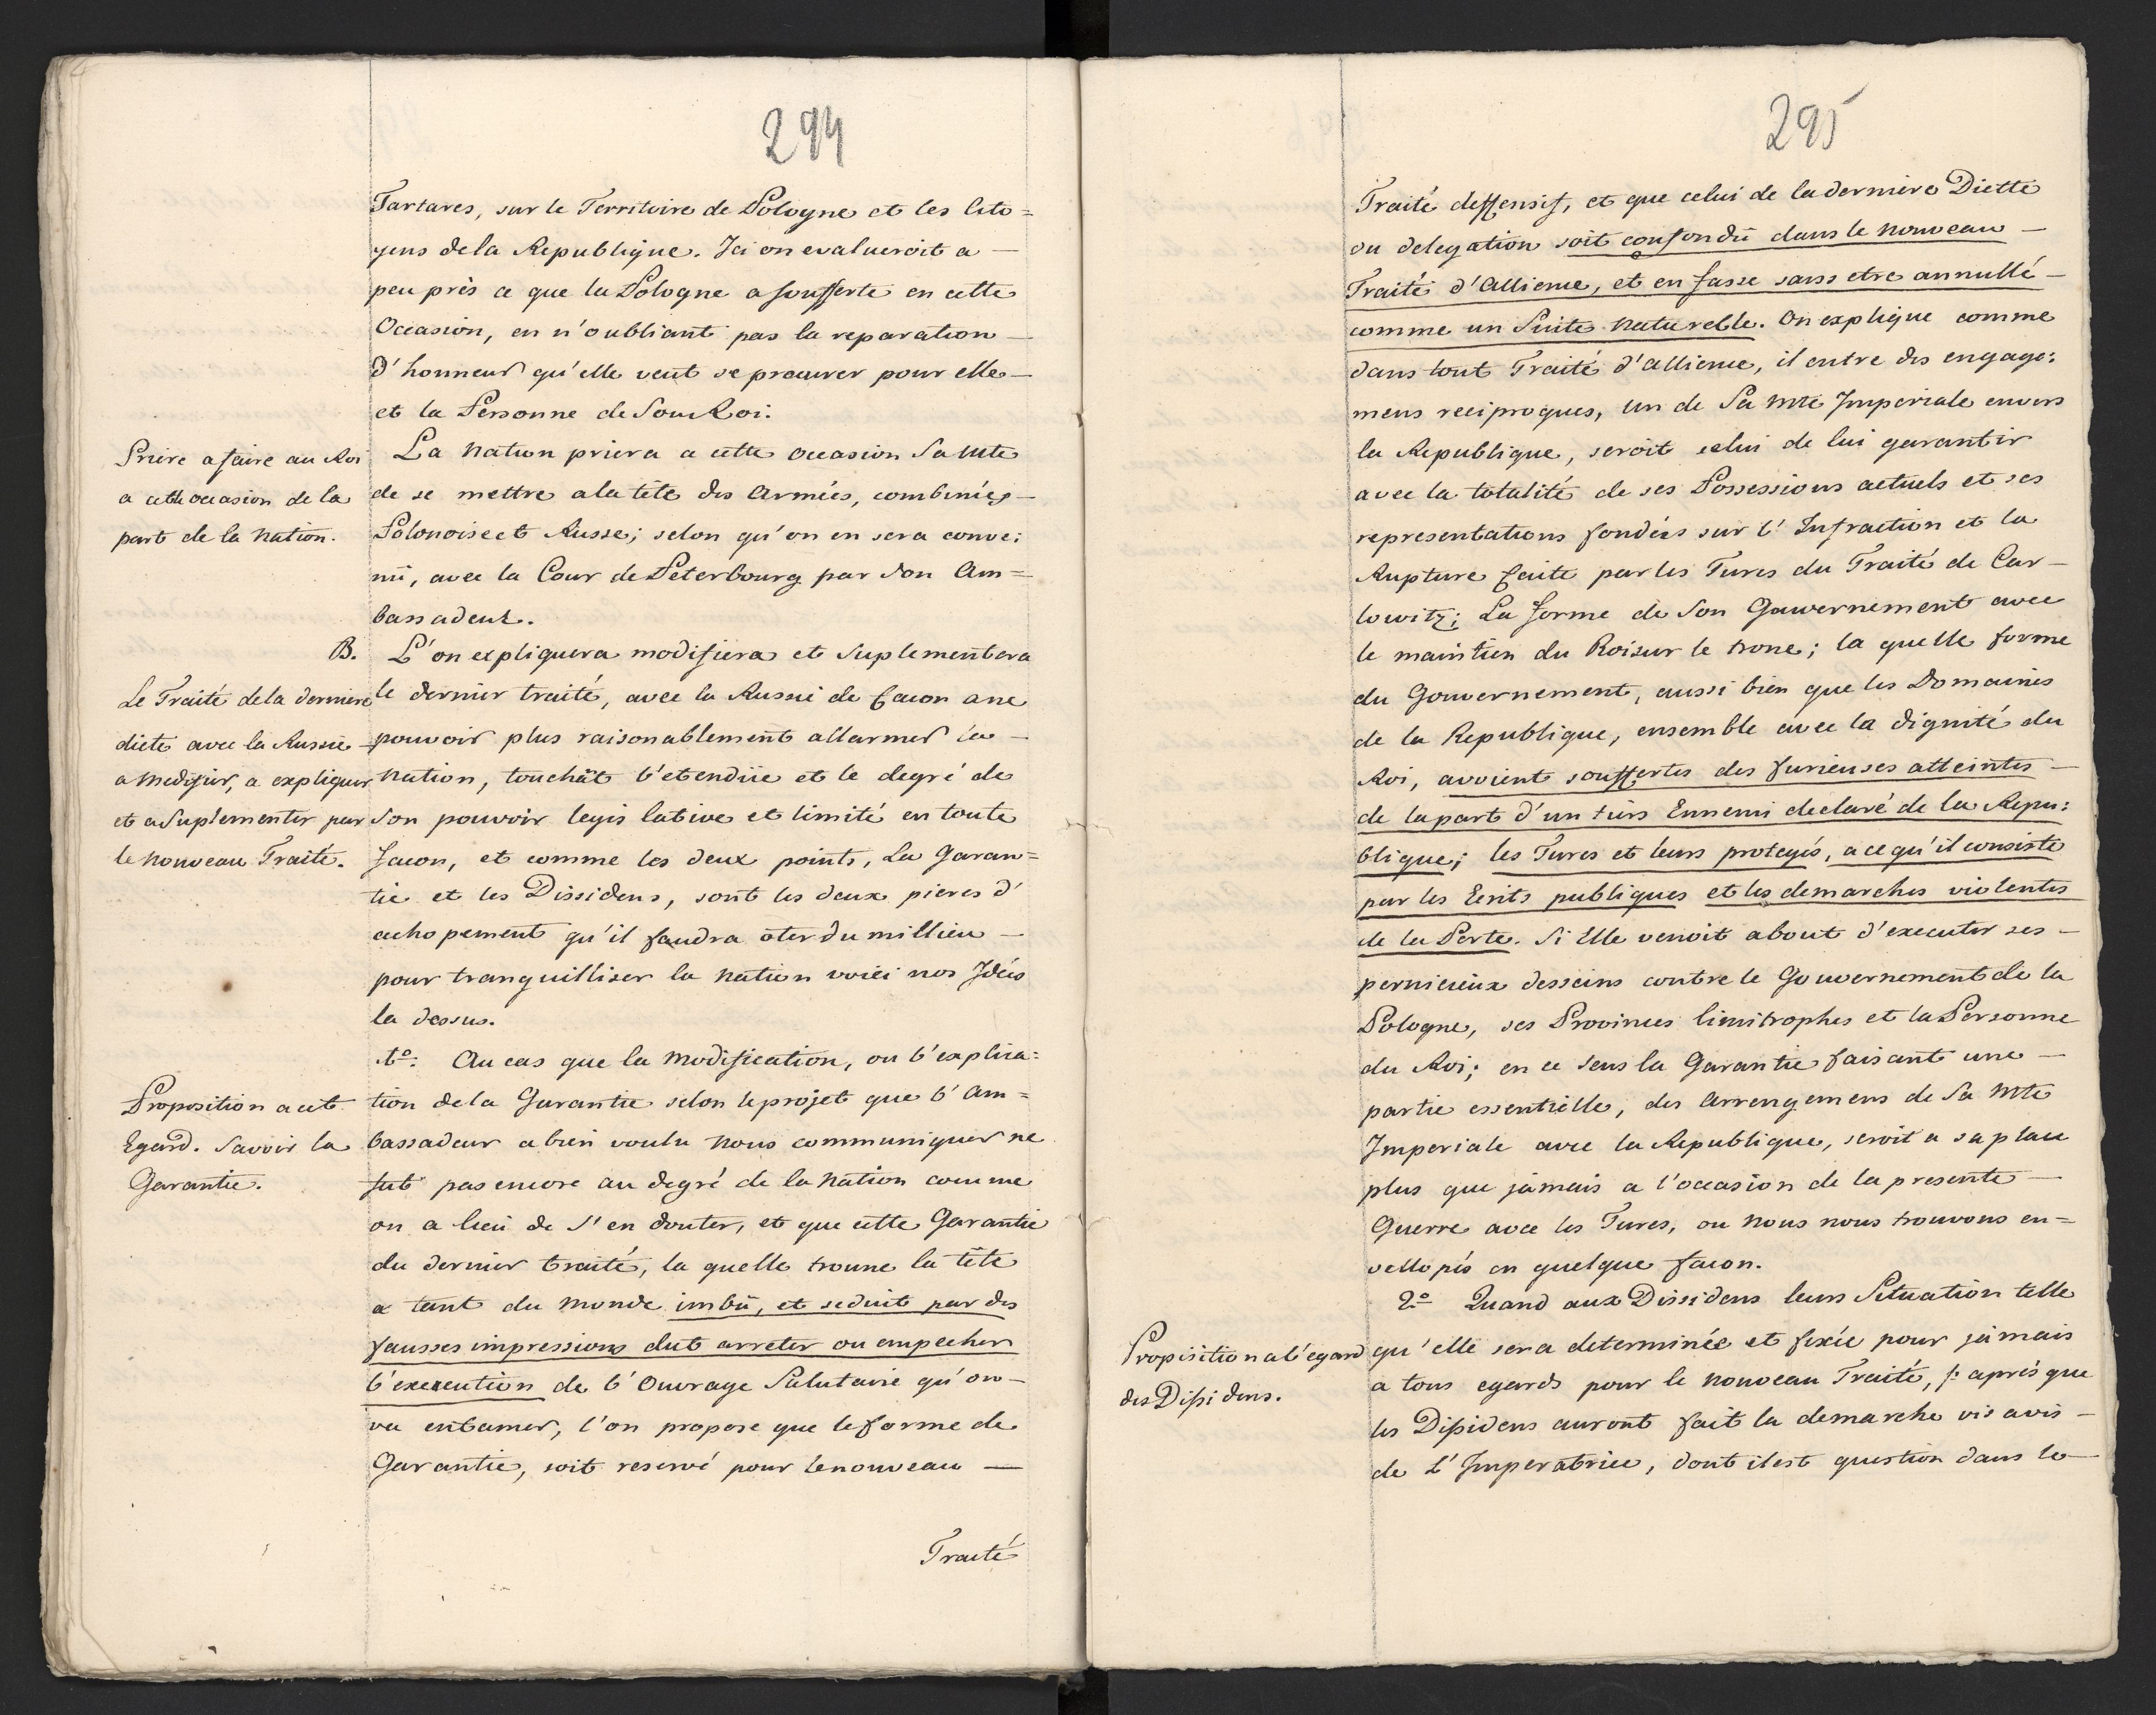 294
Tartares, sur le Territoire de Pologne et les Cito=
yens de la Republique. Ici on evalueroit a —
peu près ce que la Pologne a soufferte en cette
Occasion, en n'oubliant pas la reparation —
d'honneur qu'elle veut se procurer pour elle —
et la Personne de Son Roi.
Priere a faire au Roi
a cette occasion de la
part de la Nation.
La Nation priera a cette occasion Sa Mte
de se mettre a la tête des Armées, combinées —
Polonoise et Russe; selon qu'on en sera conve:
nü, avec la Cour de Peterbourg par Son Am=
bassadeur.
B. L'on expliquera modifiera et Suplementera
Le Traité de la derniere
diete avec la Russie —
a modifier, a expliquer
et a Suplementer par
le nouveau Traité.
le dernier traité, avec la Russie de facon a ne
pouvoir plus raisonablement allarmer la —
Nation, touchât l'etendüe et le degré de
Son pouvoir legis lative et limité en toute
facon, et comme les deux points, La Garan=
tie et les Dissidens, sont les deux pieres d'
achopement qu'il faudra ôter du millieu —
pour tranquilliser la Nation voici nos Idées
la dessus.
1o: Au cas que la Modification, ou l'explica:
Proposition a cet
Egard. Savoir la
Garantie.
tion de la Garantie selon le projet que l'Am=
bassadeur a bien voulu Nous communiquer ne
fut pas encore au degré de la Nation comme
on a lieu de S'en douter, et que cette Garantie
du dernier traité, la quelle tourne la tête
a tant du Monde imbü, et seduit par des
fausses impressions dut arreter ou empecher
l'execution de l'Ouvrage Salutaire qu'on —
va entamer, l'on propose que le forme de
Garantie, soit reservé pour le nouveau —
Traité
295
Traité deffensif, et que celui de la derniere Diette
ou delegation soit confondü dans le nouveau —
Traité d'Allience, et en fasse sans etre annullé —
comme un Suite Naturelle. On explique comme
dans tout Traité d'allience, il entre des engage:
mens reciproques, un de Sa Mte Imperiale envers
la Republique, seroit celui de lui garantir
avec la totalité de ses Possessions actuels et ses
representations fondées sur l'Infraction et la
Rupture faite par les Turcs du Traité de Car —
lowitz; La forme de Son Gouvernement avec
le maintien du Roi sur le trone; la quelle forme
du Gouvernement, aussi bien que les Domaines
de la Republique, ensemble avec la dignité du
Roi, avoient souffertes des furieuses atteintes —
de la part d'un tiers Ennemi declaré de la Repu:
blique; les Turcs et leurs protegés, a ce qu'il consiste
par les Ecrits publiques et les demarches violentes
de la Porte. Si Elle venoit a bout d'executer ses —
pernicieux desseins contre le Gouvernement de la
Pologne, ses Provinces limitrophes et la Personne
du Roi; en ce sens la Garantie faisant une —
partie essentielle, des Arrengemens de Sa Mte
Imperiale avec la Republique, seroit a sa place
plus que jamais a l'occasion de la presente —
Guerre avec les Turcs, ou Nous nous trouvons en=
vellopés en quelque facon.
2o Quand aux Dissidens leurs Situation telle
Proposition a l'egard
des Dissidens.
qu'elle sera determinée et fixée pour jamais
a tous egards pour le nouveau Traité, /: aprés que
les Dissidens auront fait la demarche vis a vis —
de L'Imperatrice, dont il est question dans le —